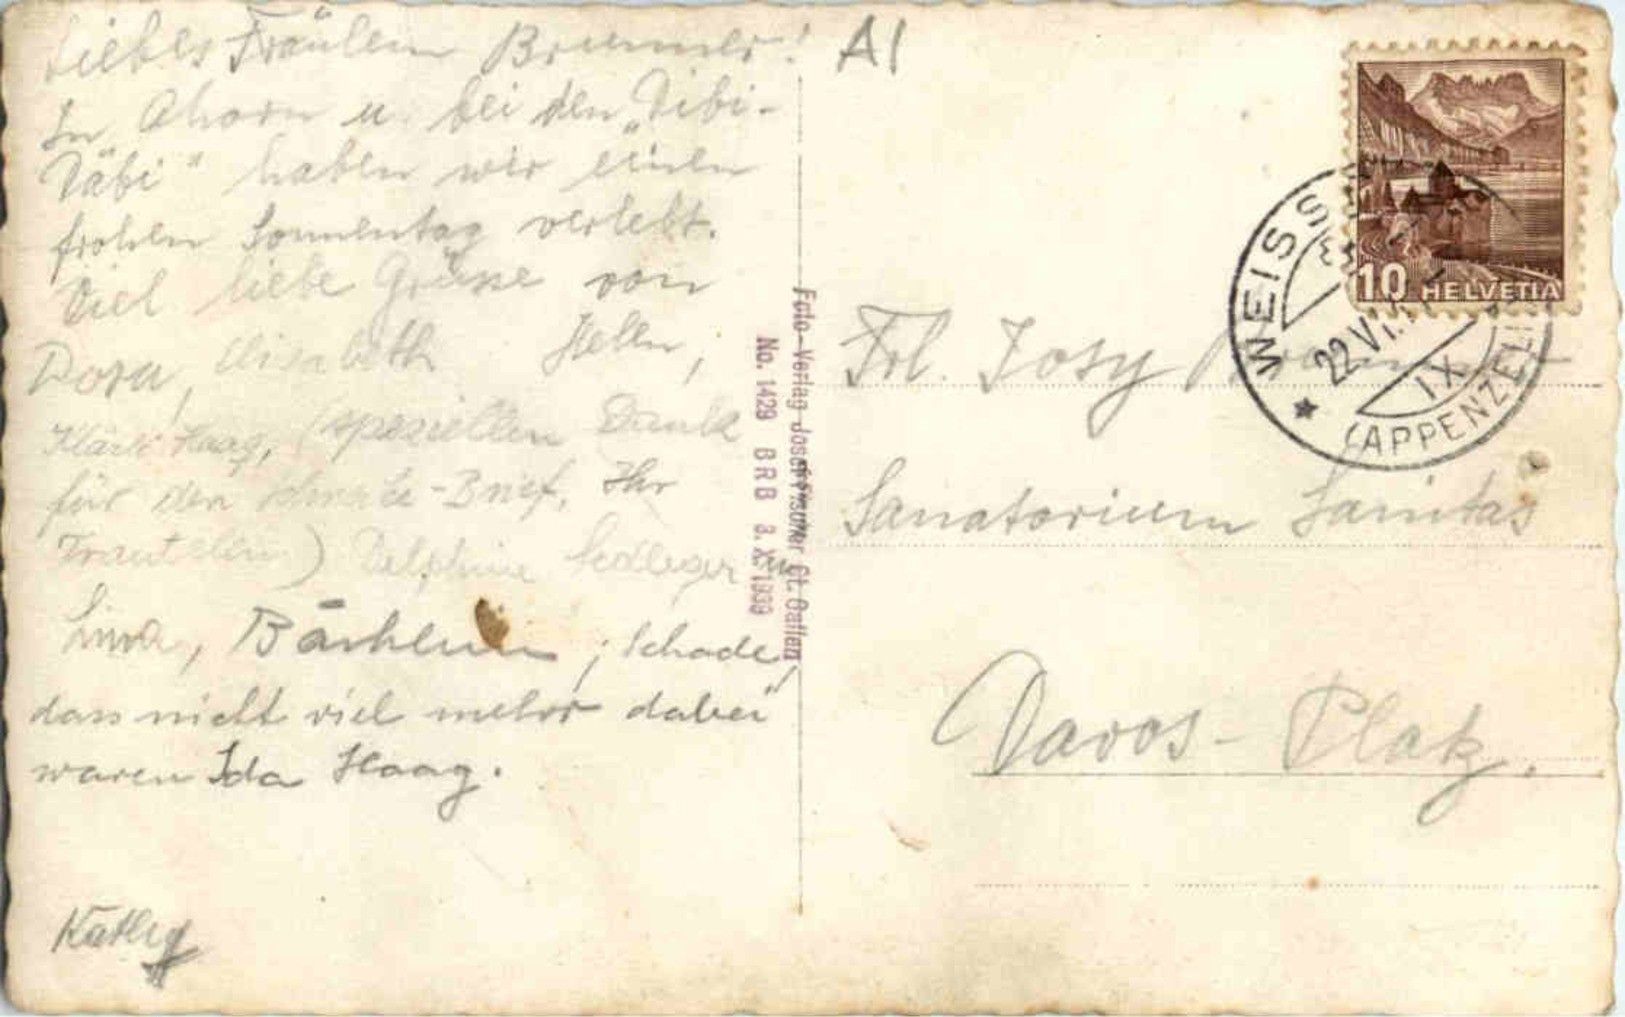 Liebes Fräulein Brunner!
In Ahorn u. bei den „Bibi-
Däbi" haben wir einen
frohen Sonnentag verlebt.
Viel liebe Grüsse von
Dora, Elisabeth Helen,
Klärli Haag, (speziellen Dank
für den -Brief, Ihr
) Delphine
Lina, ; Schade,
dass nicht viel mehr dabei
waren Ida Haag.
Foto-Verlag Josef St. Gallen
No. 1429 BRB 3. X. 1939
A1
10 HELVETIA
WEISS
22 VI.
IX
(APPENZELL
Frl. Josy
Sanatorium Sanitas
Davos-Platz.